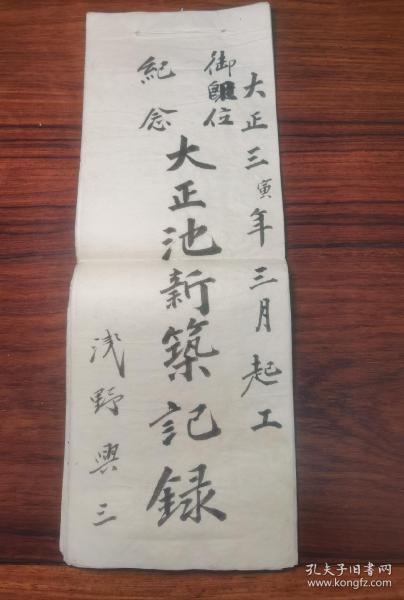 大正三寅年三月起工
御即位
紀念
大正池新築記録
浅野興三
孔夫子旧书网
www.kongfz.com